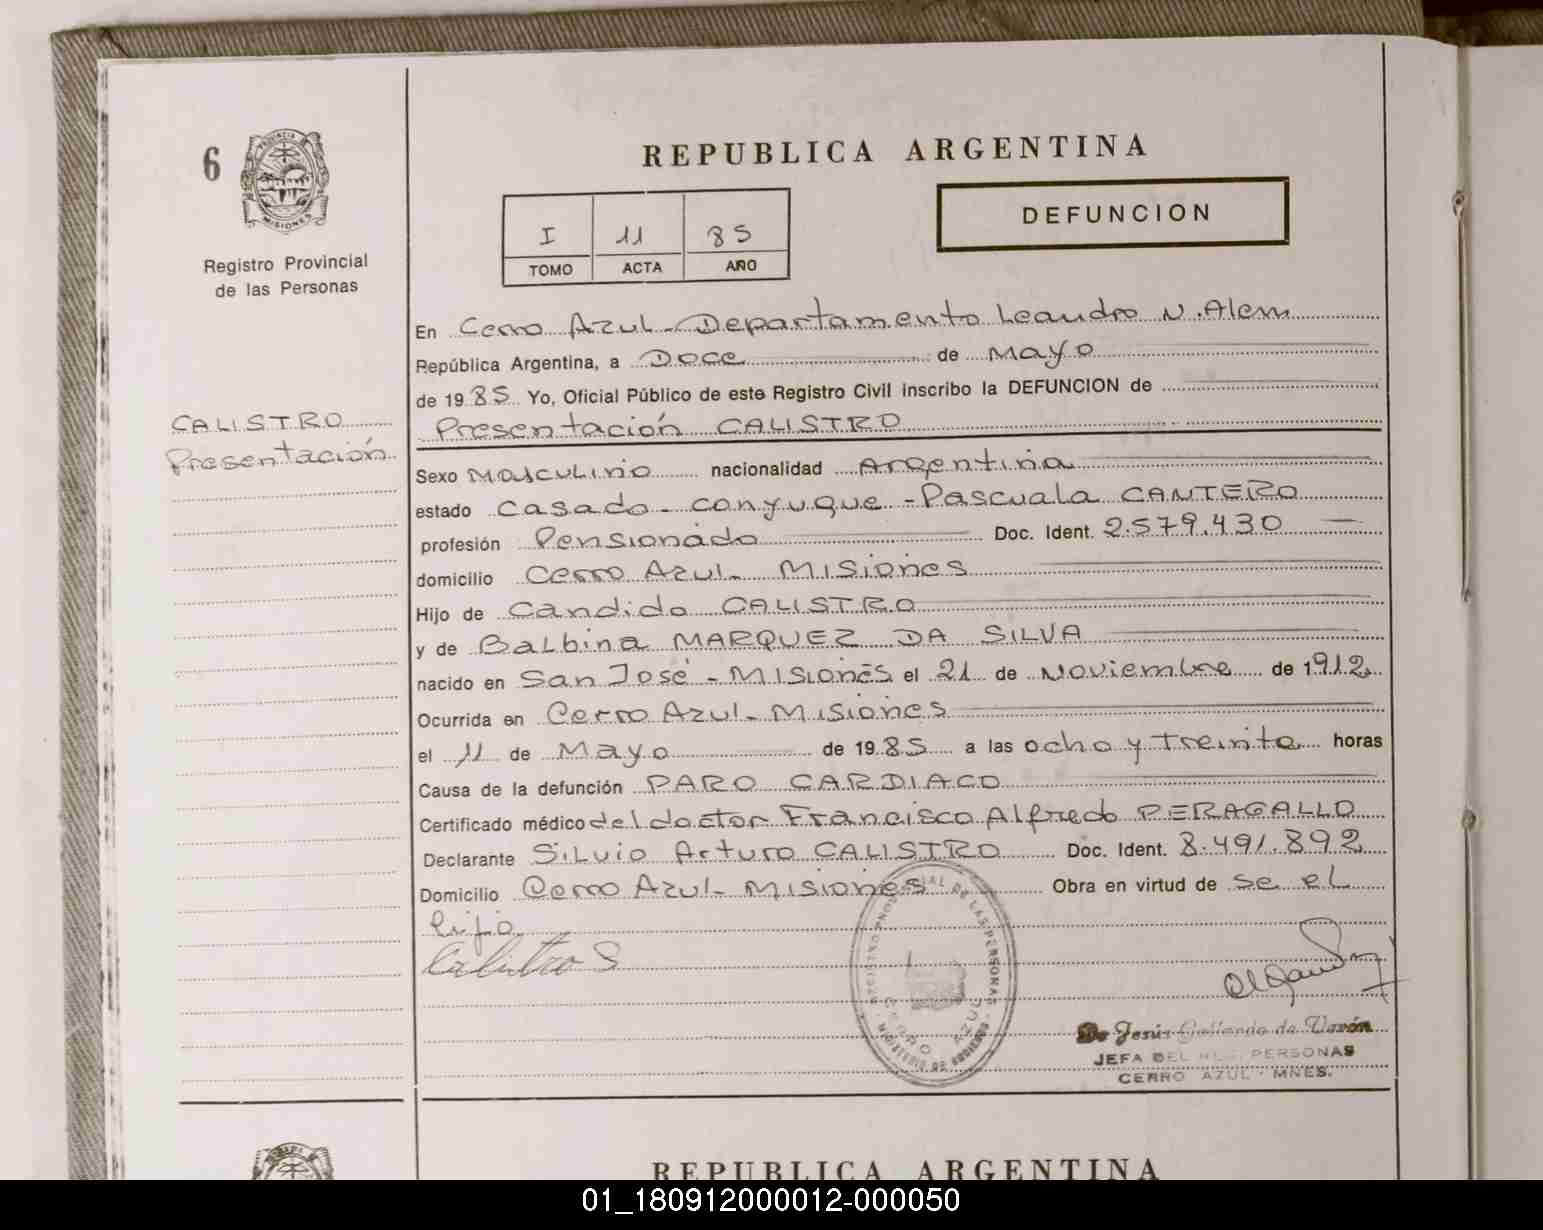 6
PROVINCIA
MISIONES
Registro Provincial
de las Personas
CALISTRO
Presentación
REPUBLICA ARGENTINA
I 11 85
TOMO ACTA AÑO
DEFUNCION
En Cerro Azul - Departamento Leandro N. Alem
República Argentina, a Doce de Mayo
de 1985 Yo, Oficial Público de este Registro Civil inscribo la DEFUNCION de
Presentación CALISTRO
Sexo Masculino nacionalidad Argentina
estado Casado - conyugue - Pascuala CANTERO
profesión Pensionado Doc. Ident. 2.579.430 —
domicilio Cerro Azul - Misiones
Hijo de Candido CALISTRO
y de Balbina MARQUEZ DA SILVA
nacido en San José - Misiones el 21 de Noviembre de 1912
Ocurrida en Cerro Azul - Misiones
el 11 de Mayo de 1985 a las ocho y treinta horas
Causa de la defunción PARO CARDIACO
Certificado médico del doctor Francisco Alfredo PERAGALLO
Declarante Silvio Arturo CALISTRO Doc. Ident. 8.491.892
Domicilio Cerro Azul - Misiones Obra en virtud de se el
hijo
Calistro S
REGISTRO PROVINCIAL DE LAS PERSONAS
CERRO AZUL
MINISTERIO DE GOBIERNO
De Jesús Gallardo de Varón
JEFA DEL REG. PERSONAS
CERRO AZUL - MNES.
REPUBLICA ARGENTINA
01_180912000012-000050